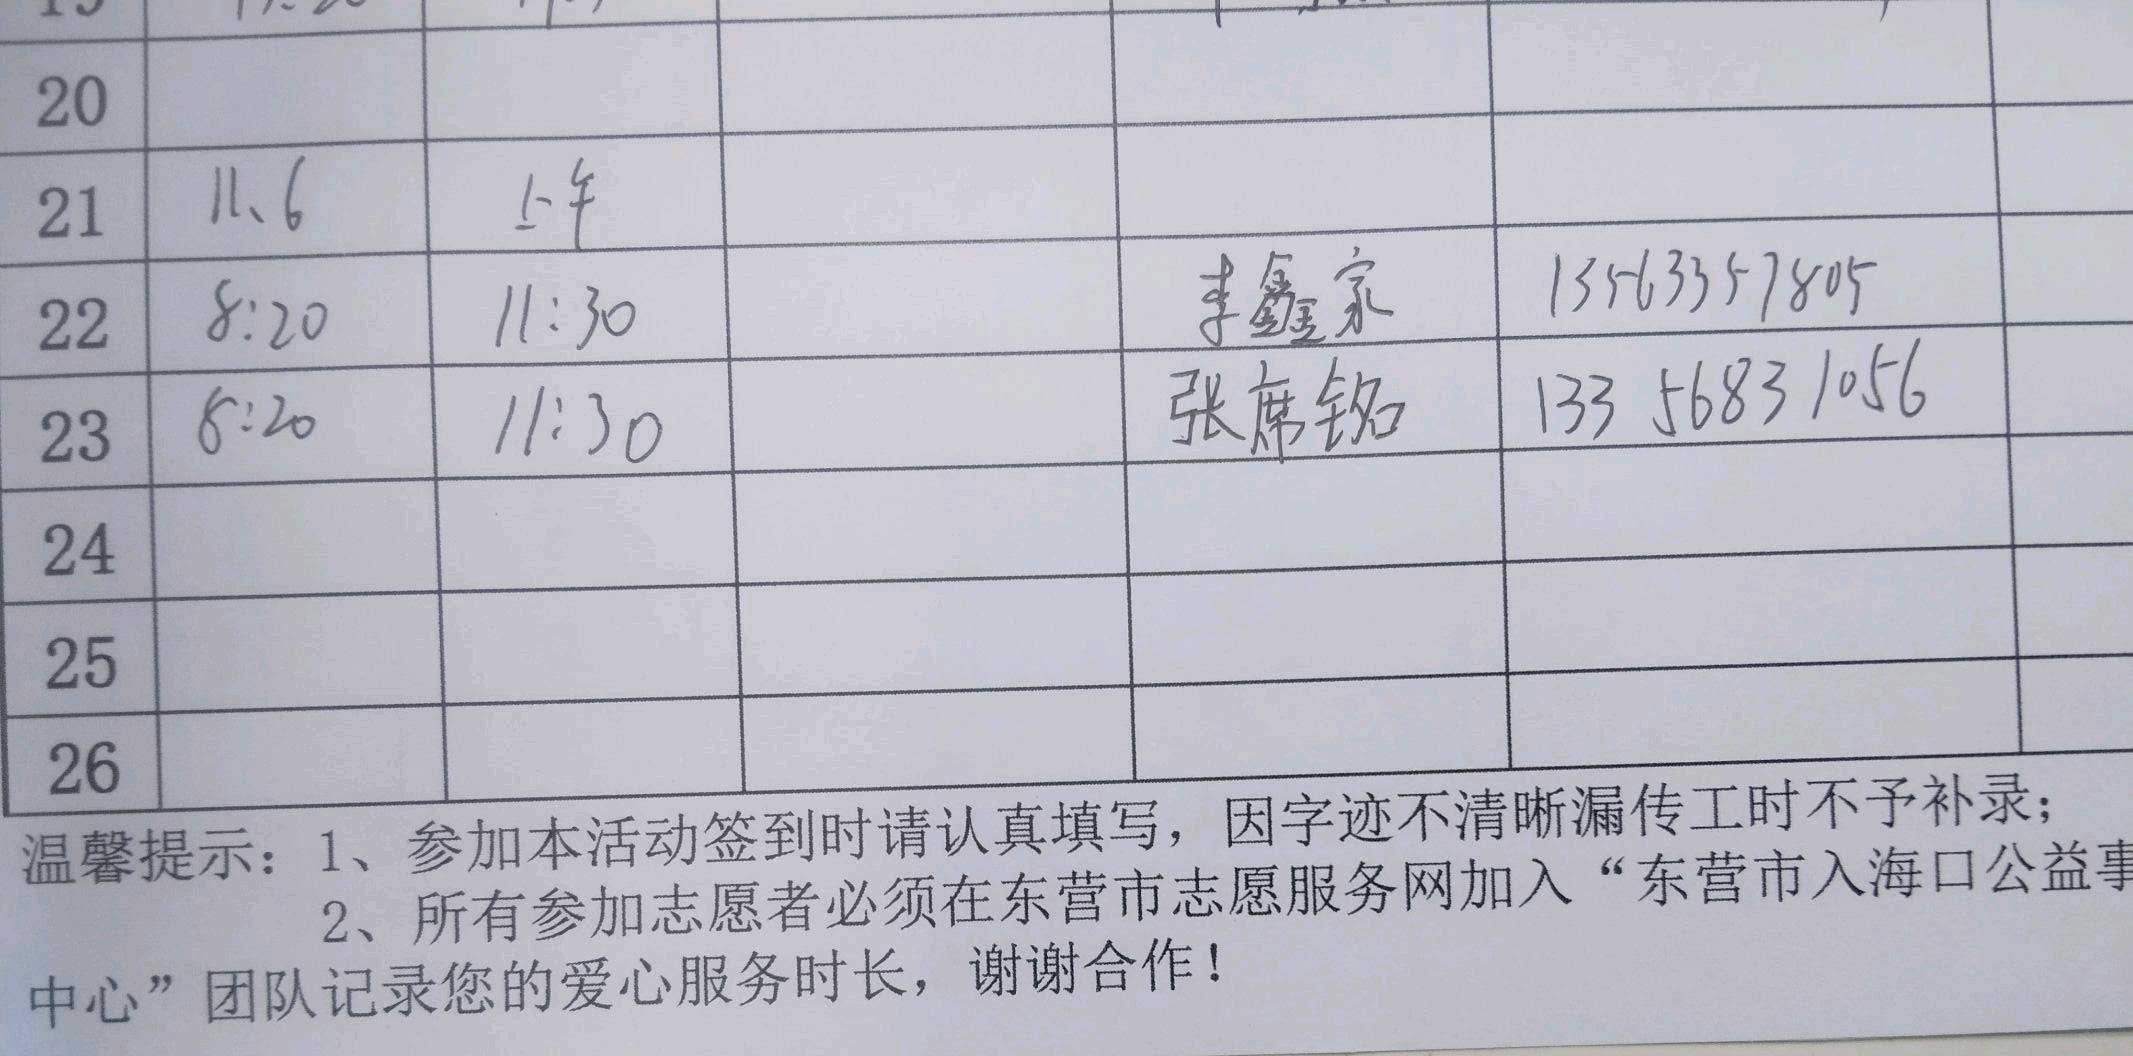 20
21 11、6 上午
22 8:20 11:30 李鑫家 13563357805
23 8:20 11:30 张席铭 133 5683 1056
24
25
26
温馨提示：1、参加本活动签到时请认真填写，因字迹不清晰漏传工时不予补录；
2、所有参加志愿者必须在东营市志愿服务网加入“东营市入海口公益事
中心”团队记录您的爱心服务时长，谢谢合作！